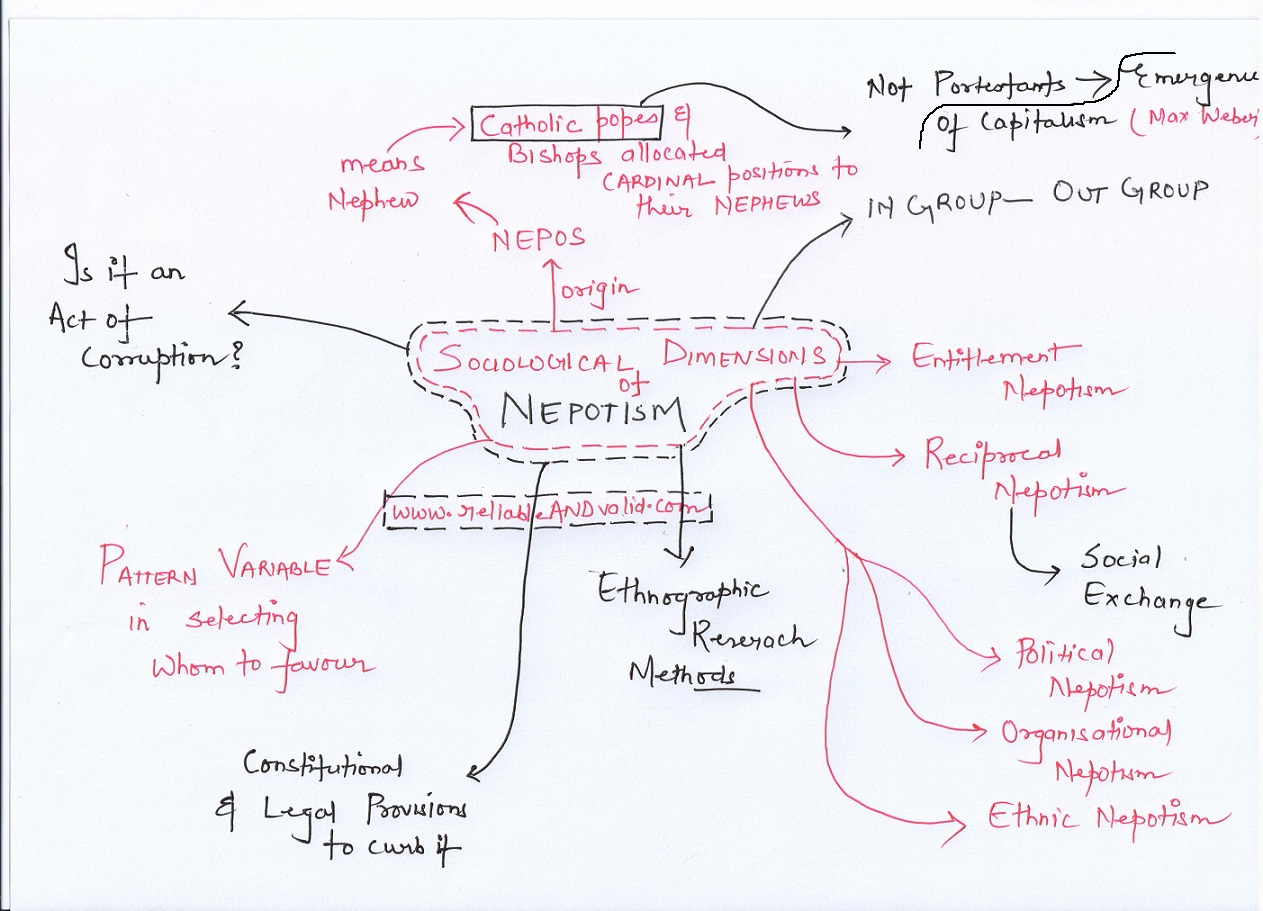 Not Portestants → Emergence
Of Capitalism (Max Weber)
Catholic popes &
Bishops allocated
CARDINAL positions to
their NEPHEWS
means
Nephew
NEPOS
origin
IN GROUP — OUT GROUP
Is it an
Act of
Corruption?
SOCIOLOGICAL DIMENSIONS
of
NEPOTISM
Entitlement
Nepotism
Reciprocal
Nepotism
Social
Exchange
www.reliableANDvalid.com
PATTERN VARIABLE
in selecting
whom to favour
Ethnographic
Reserach
Methods
Political
Nepotism
Organisational
Nepotism
Ethnic Nepotism
Constitutional
& Legal Provisions
to curb it